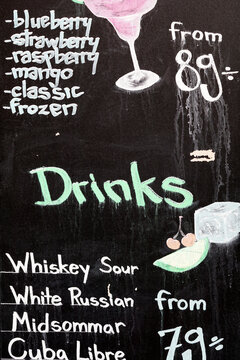 -blueberry
-strawberry
-raspberry
-mango
-classic
-frozen
from
89÷
Drinks
Whiskey Sour
White Russian
Midsommar
Cuba Libre
from
79÷